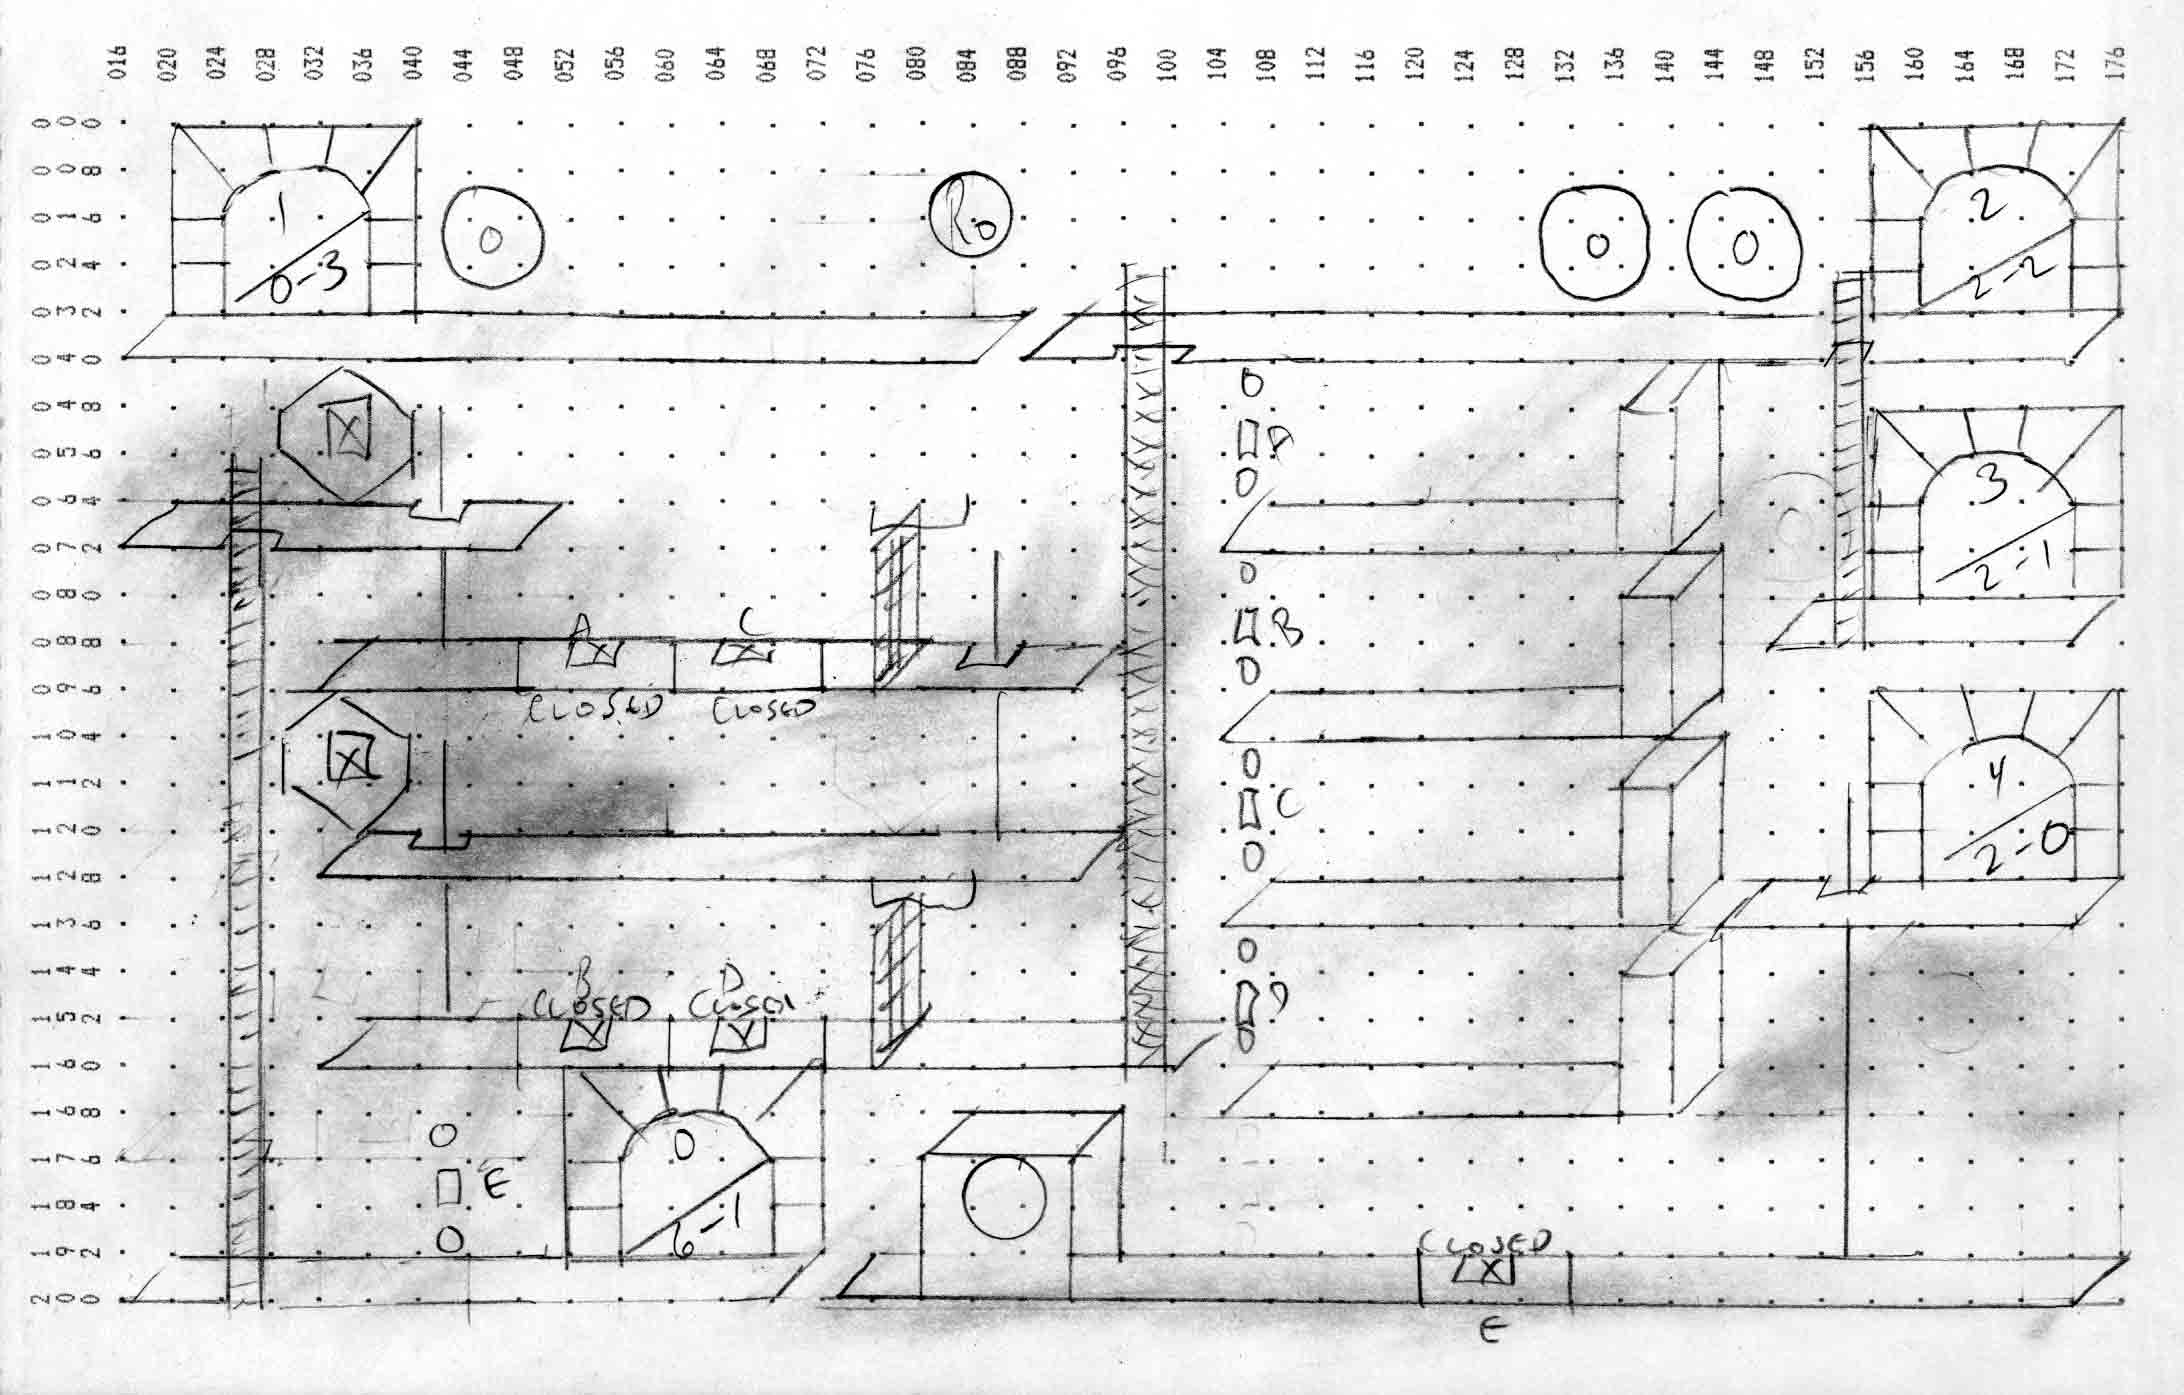 016 020 024 028 032 036 040 044 048 052 056 060 064 068 072 076 080 084 088 092 096 100 104 108 112 116 120 124 128 132 136 140 144 148 152 156 160 164 168 172 176
000
008
016
024
032
040
048
056
064
072
080
088
096
104
112
120
128
136
144
152
160
168
176
184
192
200
1
0-3
0
Ro
0
0
2
2-2
A
3
2-1
A
C
B
CLOSED
CLOSED
4
2-0
C
B
D
CLOSED
CLOSED
D
0
6-1
E
CLOSED
E